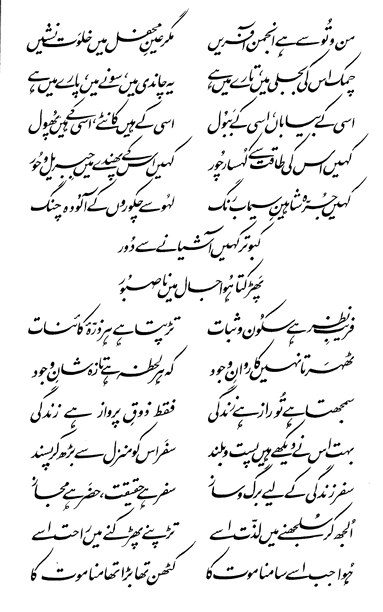 من و تُو سے ہے انجمن آفریں مگر عینِ محفل میں خلوت نشیں
چمک اس کی بجلی میں، تارے میں ہے یہ چاندی میں، سونے میں، پارے میں ہے
اسی کے بیاباں، اسی کے ببُول اسی کے ہیں کانٹے، اسی کے ہیں پھُول
کہیں اس کی طاقت سے کُہسار چُور کہیں اس کے پھندے میں جبریل و حور
کہیں جُرّہ شاہینِ سیماب رنگ لہُو سے چکوروں کے آلُودہ چنگ
کبوتر کہیں آشیانے سے دُور
پھَڑکتا ہُوا جال میں ناصبُور
فریبِ نظر ہے سکُون و ثبات تڑپتا ہے ہر ذرّۂ کائنات
ٹھہَرتا نہیں کاروانِ وجُود کہ ہر لحظہ ہے تازہ شانِ وجُود
سمجھتا ہے تُو راز ہے زندگی فقط ذوقِ پرواز ہے زندگی
بہت اس نے دیکھے ہیں پست و بلند سفَر اس کو منزل سے بڑھ کر پسند
سفر زندگی کے لیے برگ و ساز سفر ہے حقیقت، حضَر ہے مجاز
اُلجھ کر سُلجھنے میں لذّت اسے تڑپنے پھڑکنے میں راحت اسے
ہُوا جب اسے سامنا موت کا کٹھن تھا بڑا تھامنا موت کا